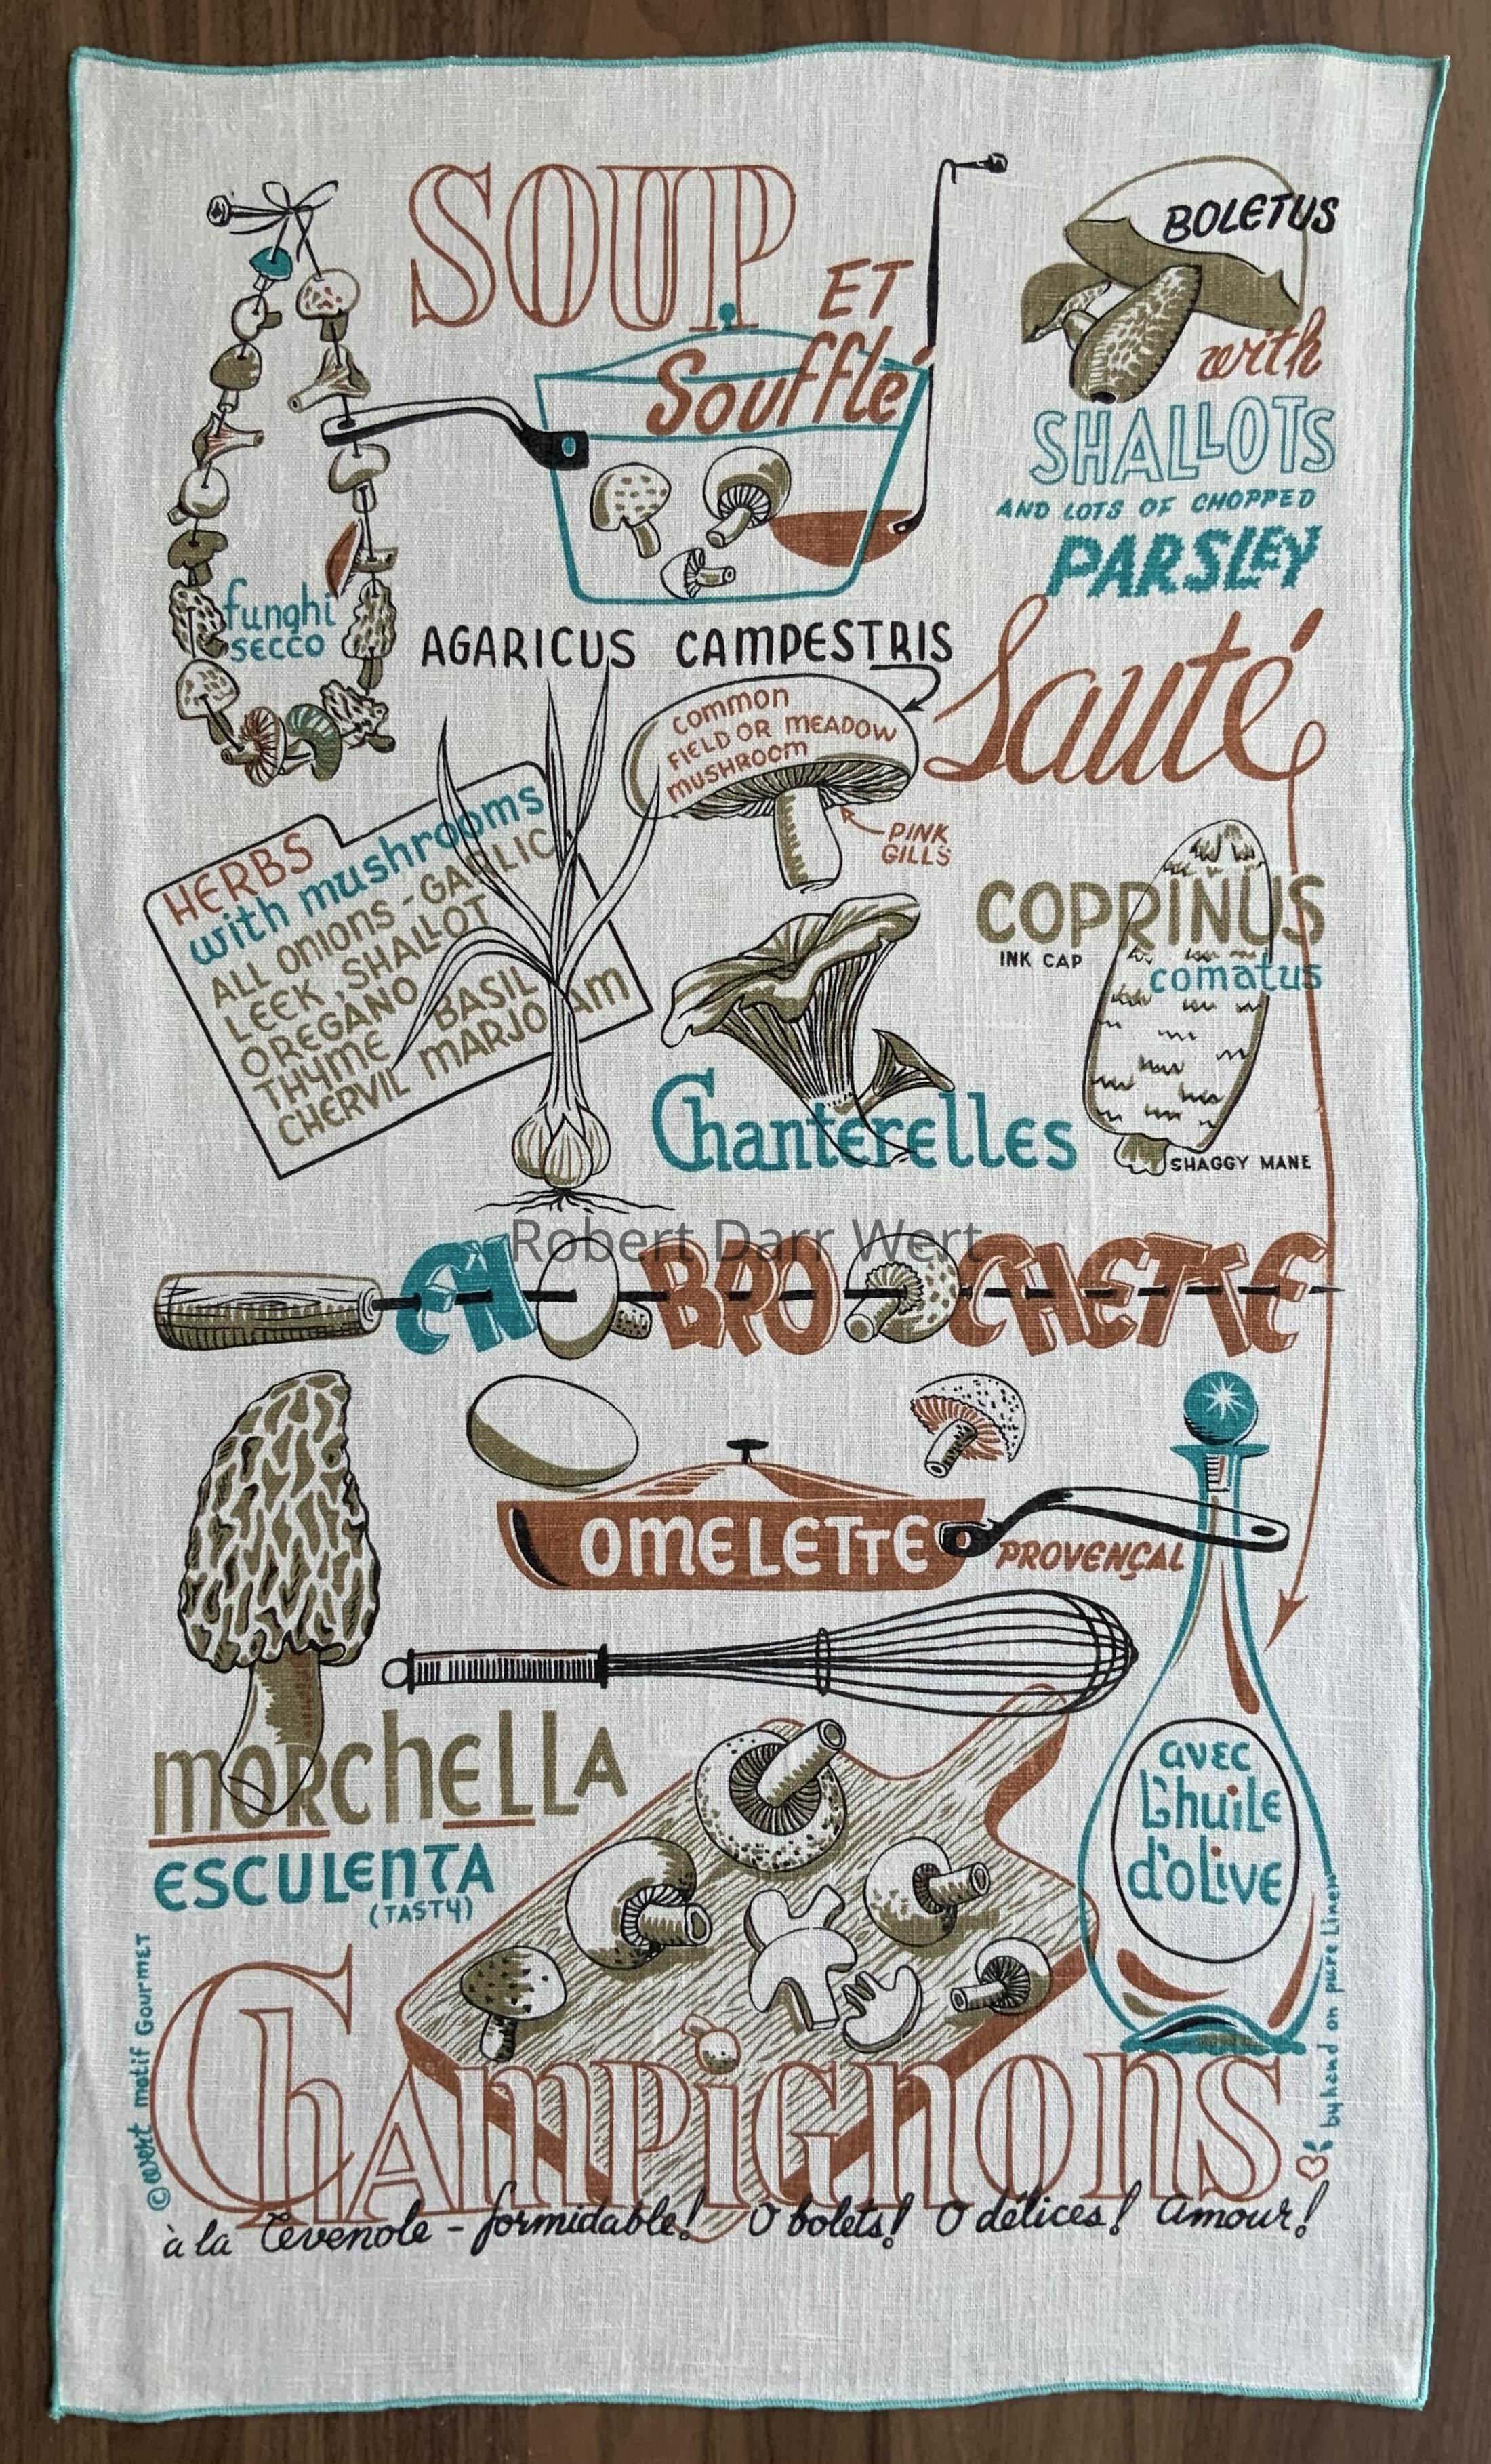 SOUP
ET
Soufflé
BOLETUS
with
SHALLOTS
AND LOTS OF CHOPPED
PARSLEY
Sauté
funghi
SECCO
AGARICUS CAMPESTRIS
COMMON
FIELD OR MEADOW
MUSHROOM
PINK
GILLS
HERBS
with mushrooms
ALL ONIONS - GARLIC
LEEK, SHALLOT
OREGANO BASIL
THYME MARJORAM
CHERVIL
COPRINUS
INK CAP
comatus
SHAGGY MANE
Chanterelles
Robert Darr Wert
EN BROCHETTE
OMELETTE
PROVENÇAL
MORCHELLA
ESCULENTA
(TASTY)
avec
L'huile
d'olive
Champignons
à la Cevenole - formidable! O bolets! O délices! Amour!
© wert motif Gourmet
by hand on pure Linen